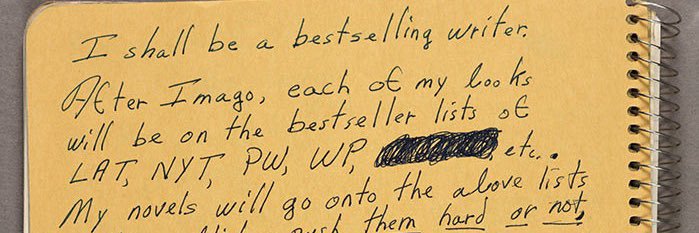 I shall be a bestselling writer.
After Imago, each of my books
will be on the bestseller lists of
LAT, NYT, PW, WP, etc.
My novels will go onto the above lists
push them hard or not,